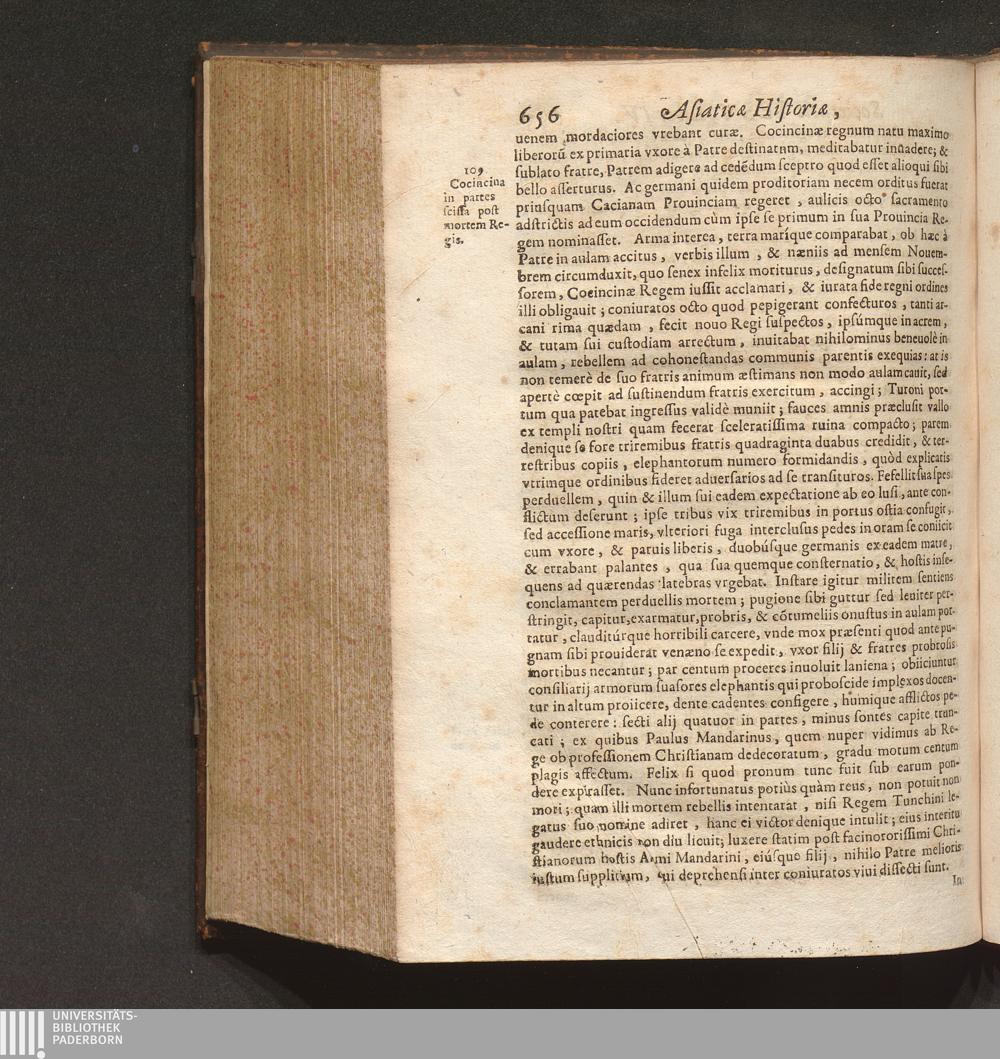 656 Aſiaticæ Hiſtoriæ,
uenem mordaciores vrebant curæ. Cocincinæ regnum natu maximo
liberorũ ex primaria vxore à Patre deſtinatum, meditabatur inuadere; &
ſublato fratre, Patrem adigere ad cedẽdum ſceptro quod eſſet alioqui ſibi
bello aſſerturus. Ac germani quidem proditoriam necem orditus fuerat
priuſquam Cacianam Prouinciam regeret, aulicis octo ſacramento
adſtrictis ad eum occidendum cùm ipſe ſe primum in ſua Prouincia Re-
gem nominaſſet. Arma interea, terra marique comparabat, ob hæc à
Patre in aulam accitus, verbis illum, & næniis ad menſem Nouem-
brem circumduxit, quo ſenex infelix moriturus, deſignatum ſibi succeſ-
ſorem, Cocincinæ Regem iuſſit acclamari, & iurata fide regni ordines
illi obligauit; coniuratos octo quod pepigerant confecturos, tanti ar-
cani rima quædam, fecit nouo Regi ſuſpectos, ipſúmque in acrem,
& tutam ſui cuſtodiam arrectum, inuitabat nihilominus beneuolè in
aulam, rebellem ad cohoneſtandas communis parentis exequias: at is
non temerè de ſuo fratris animum æſtimans non modo aulam cauit, ſed
apertè cœpit ad ſuſtinendum fratris exercitum, accingi; Turoni por-
tum qua patebat ingreſſus validè muniit; fauces amnis præcluſit vallo
ex templi noſtri quam fecerat ſceleratiſſima ruina compacto; parem
denique ſe fore triremibus fratris quadraginta duabus credidit, & ter-
reſtribus copiis, elephantorum numero formidandis, quòd explicatis
vtrimque ordinibus fideret aduerſarios ad ſe tranſituros. Fefellit ſua ſpes
perduellem, quin & illum ſui eadem expectatione ab eo luſi, ante con-
flictum deſerunt; ipſe tribus vix triremibus in portus oſtia confugit,
ſed acceſſione maris, vlteriori fuga intercluſus pedes in oram ſe coniicit
cum vxore, & paruis liberis, duobúſque germanis ex eadem matre,
& errabant palantes, qua ſua quemque conſternatio, & hoſtis inſe-
quens ad quærendas latebras vrgebat. Inſtare igitur militem ſentiens
conclamantem perduellis mortem; pugione ſibi guttur ſed leuiter per-
ſtringit, capitur, exarmatur, probris, & cõtumeliis onuſtus in aulam por-
tatur, clauditúrque horribili carcere, vnde mox præſenti quod ante pu-
gnam ſibi prouiderat venæno ſe expedit, vxor filij & fratres probroſis
mortibus necantur; par centum proceres inuoluit laniena; obiiciuntur
conſiliarij armorum ſuaſores elephantis qui proboſcide implexos docen-
tur in altum proiicere, dente cadentes configere, humique afflictos pe-
de conterere: ſecti alij quatuor in partes, minus ſontes capite trun-
cati; ex quibus Paulus Mandarinus, quem nuper vidimus ab Re-
ge ob profeſſionem Chriſtianam dedecoratum, gradu motum centum
plagis affectum. Felix ſi quod pronum tunc fuit ſub earum pon-
dere expiraſſet. Nunc infortunatus potiùs quàm reus, non potuit non
mori; quam illi mortem rebellis intentarat, niſi Regem Tunchini le-
gatus ſuo nomine adiret, hanc ei victor denique intulit; eius interitu
gaudere ethnicis non diu licuit; luxere ſtatim poſt facinoroſiſſimi Chri-
ſtianorum hoſtis Anni Mandarini, eiúſque filij, nihilo Patre melioris
iuſtum ſupplitium, qui deprehenſi inter coniuratos viui diſſecti ſunt.
In
109
Cocincina
in partes
ſciſſa poſt
mortem Re-
gis.
UNIVERSITÄTS-
BIBLIOTHEK
PADERBORN